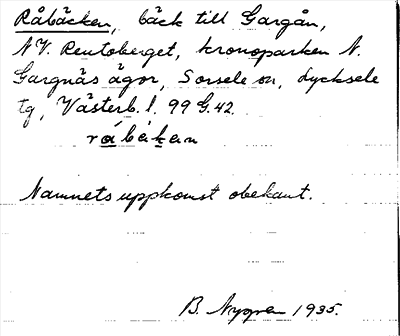 Råbäcken, bäck till Gargån,
NV. Rentoberget, kronoparken N.
Gargnäs ägor, Sorsele sn, Lycksele
tg, Västerb. l. 99 G. 42.
råbekan
Namnets uppkomst obekant.
B. Nygren 1935.